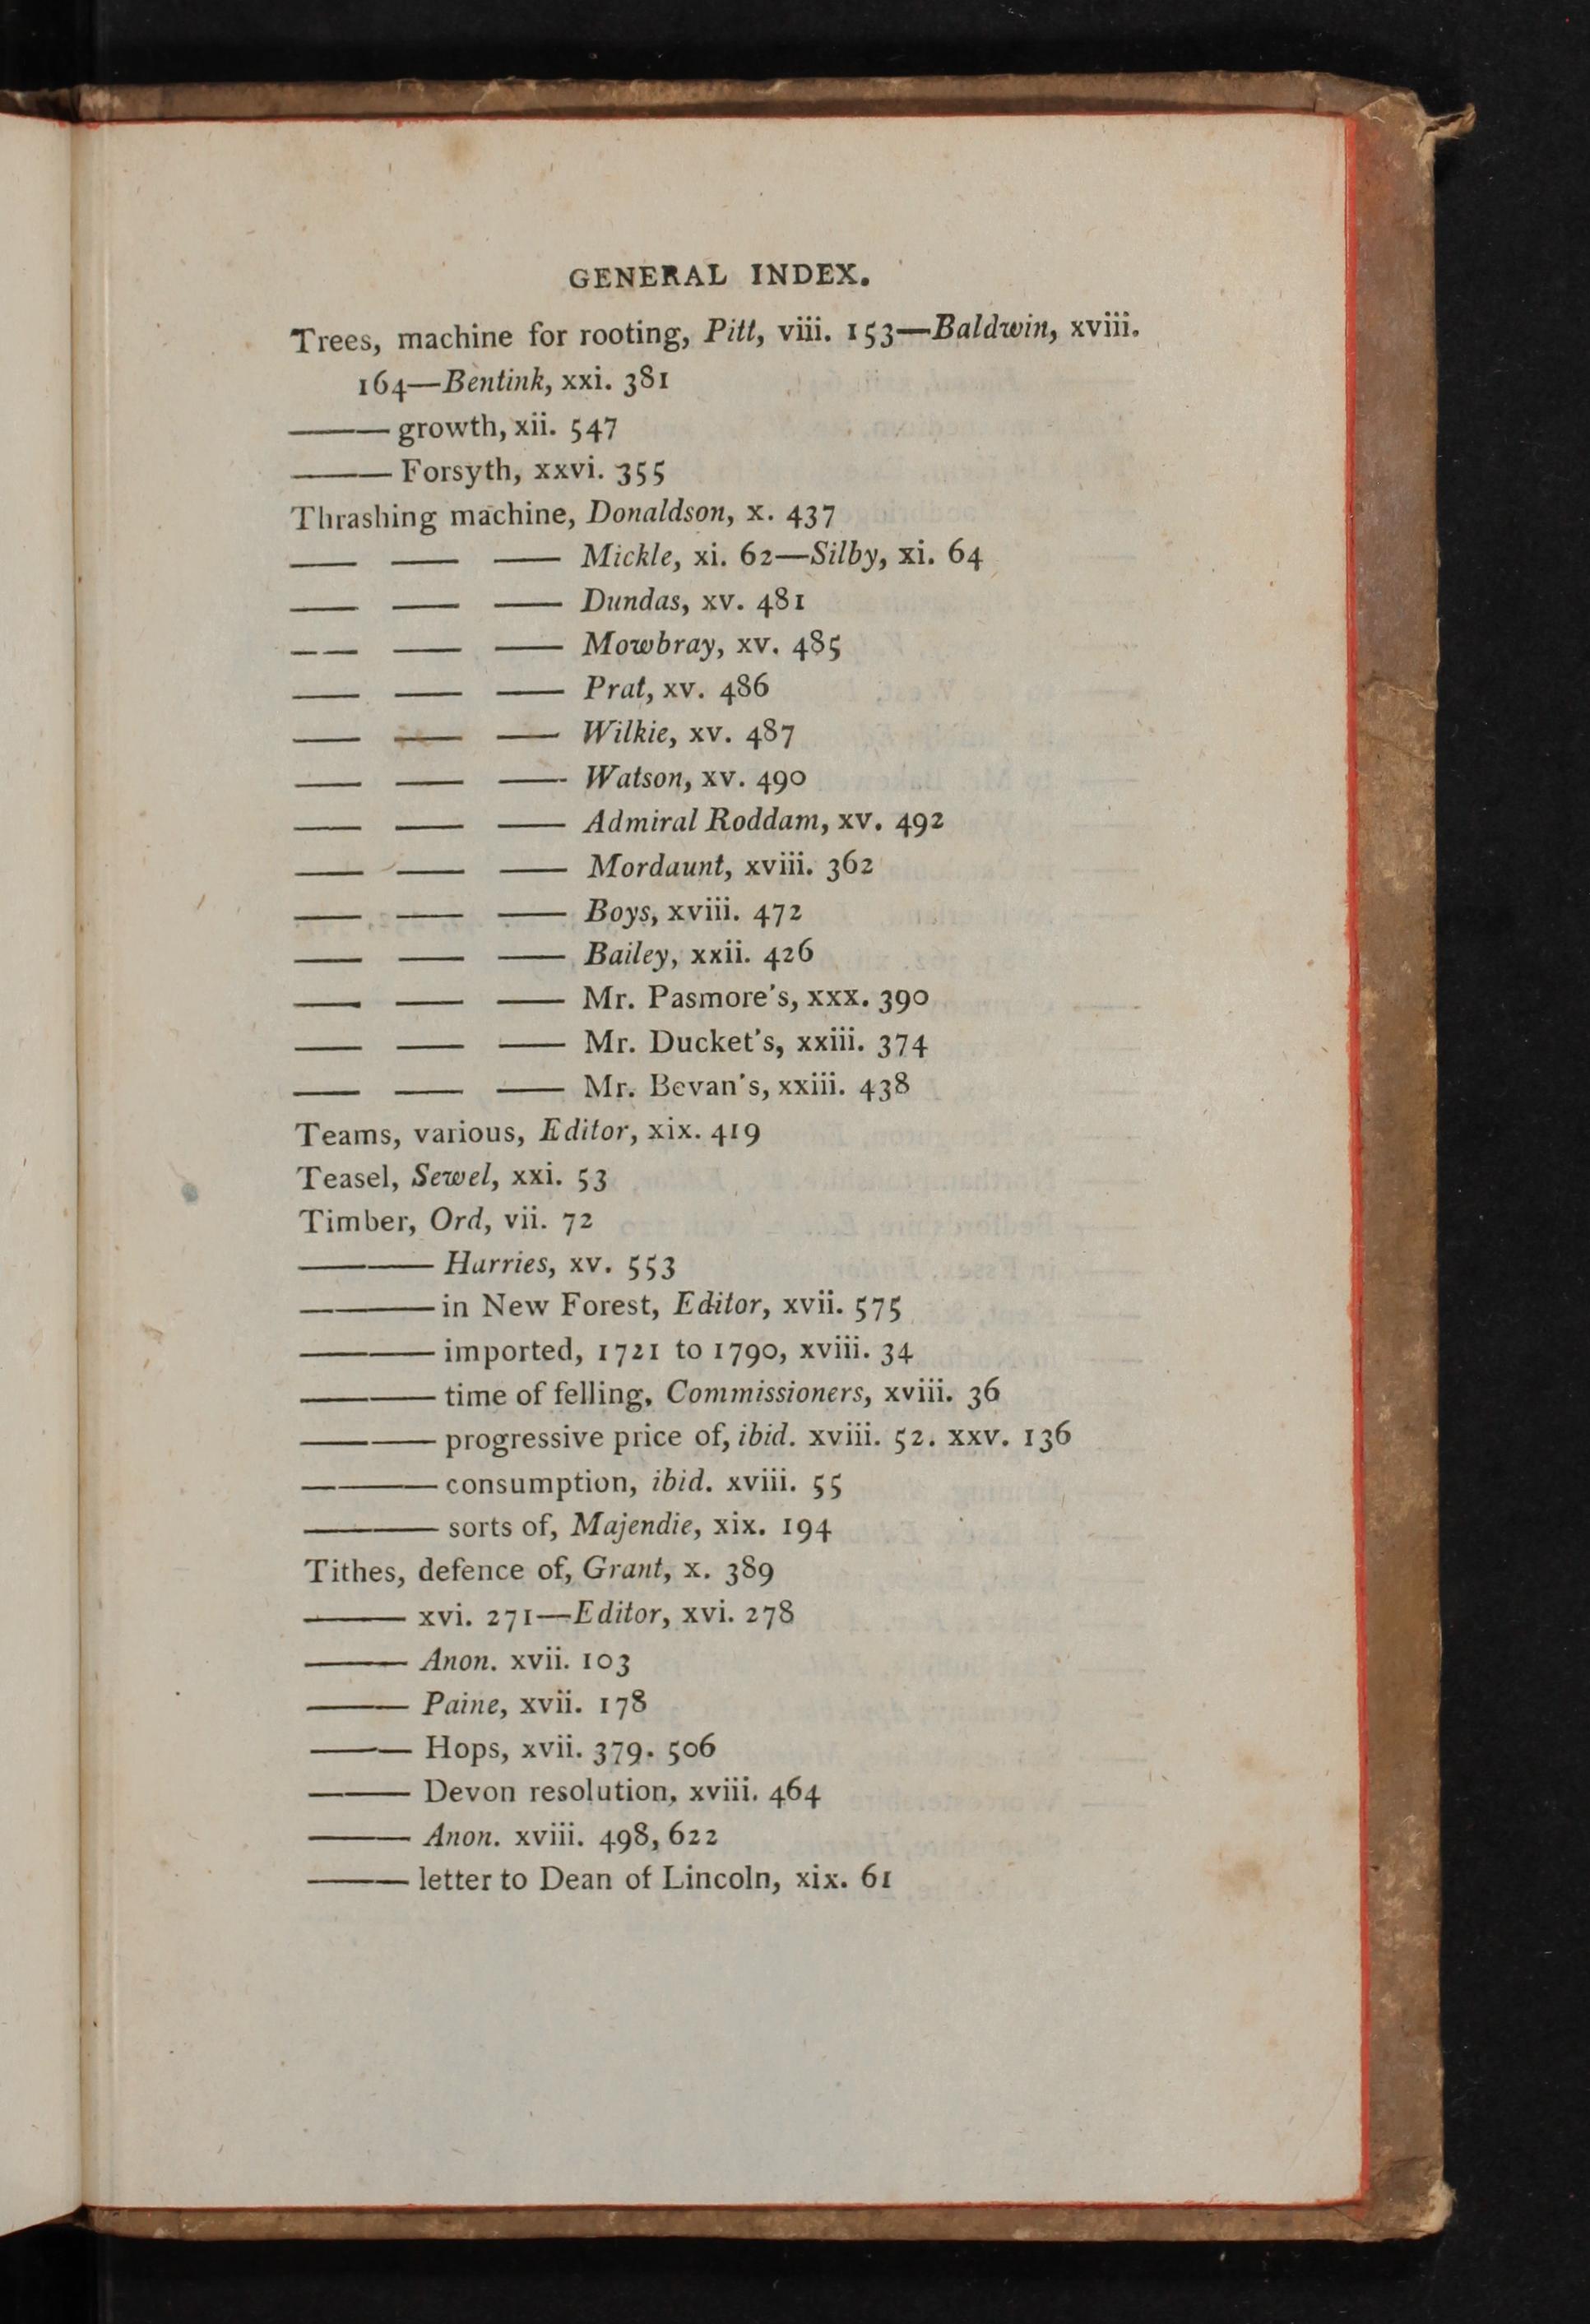 GENERAL INDEX.
Trees, machine for rooting, Pitt, viii. 153—Baldwin, xviii.
164—Bentink, xxi. 381
——— growth, xii. 547
——— Forsyth, xxvi. 355
Thrashing machine, Donaldson, x. 437
— — — Mickle, xi. 62—Silby, xi. 64
— — — Dundas, xv. 481
— — — Mowbray, xv. 485
— — — Prat, xv. 486
— — — Wilkie, xv. 487
— — — Watson, xv. 490
— — — Admiral Roddam, xv. 492
— — — Mordaunt, xviii. 362
— — — Boys, xviii. 472
— — — Bailey, xxii. 426
— — — Mr. Pasmore's, xxx. 390
— — — Mr. Ducket's, xxiii. 374
— — — Mr. Bevan's, xxiii. 438
Teams, various, Editor, xix. 419
Teasel, Sewel, xxi. 53
Timber, Ord, vii. 72
———— Harries, xv. 553
———— in New Forest, Editor, xvii. 575
———— imported, 1721 to 1790, xviii. 34
———— time of felling, Commissioners, xviii. 36
———— progressive price of, ibid. xviii. 52. xxv. 136
———— consumption, ibid. xviii. 55
———— sorts of, Majendie, xix. 194
Tithes, defence of, Grant, x. 389
——— xvi. 271—Editor, xvi. 278
——— Anon. xvii. 103
——— Paine, xvii. 178
——— Hops, xvii. 379. 506
——— Devon resolution, xviii. 464
——— Anon. xviii. 498, 622
——— letter to Dean of Lincoln, xix. 61